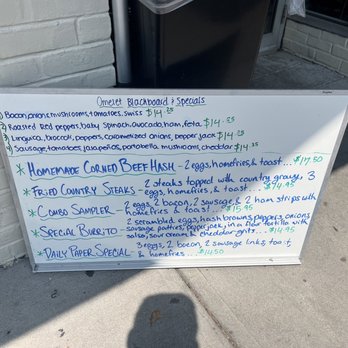 Omelet Blackboard & Specials
1) Bacon, onions, mushrooms, tomatoes, swiss $14.25
2) Roasted Red peppers, baby spinach, avocado, ham, feta $14.25
3) Linguica, broccoli, peppers, caramelized onions, pepper jack $14.25
4) Sausage, tomatoes, jalapeños, portobella mushrooms, cheddar $14.25
* HOMEMADE CORNED BEEF HASH - 2 eggs, homefries, & toast... $17.50
* FRIED COUNTRY STEAKS - 2 steaks topped with country gravy, 3
eggs, homefries, & toast... $14.95
* COMBO SAMPLER - 2 eggs, 2 bacon, 2 sausage & 2 ham strips with
homefries & toast... $15.95
* SPECIAL BURRITO - 2 scrambled eggs, hash browns, peppers, onions,
sausage patties, pepperjack, in a flour tortilla with
salsa, sour cream & cheddar grits... $14.95
* DAILY PAPER SPECIAL - 3 eggs, 2 bacon, 2 sausage links, toast,
& homefries... $14.50